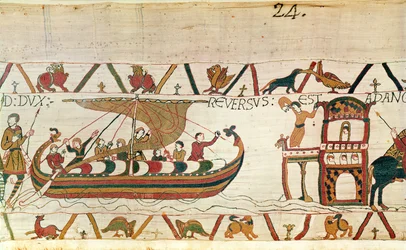 24.
D: DVX: REVERSVS: EST AD ANG